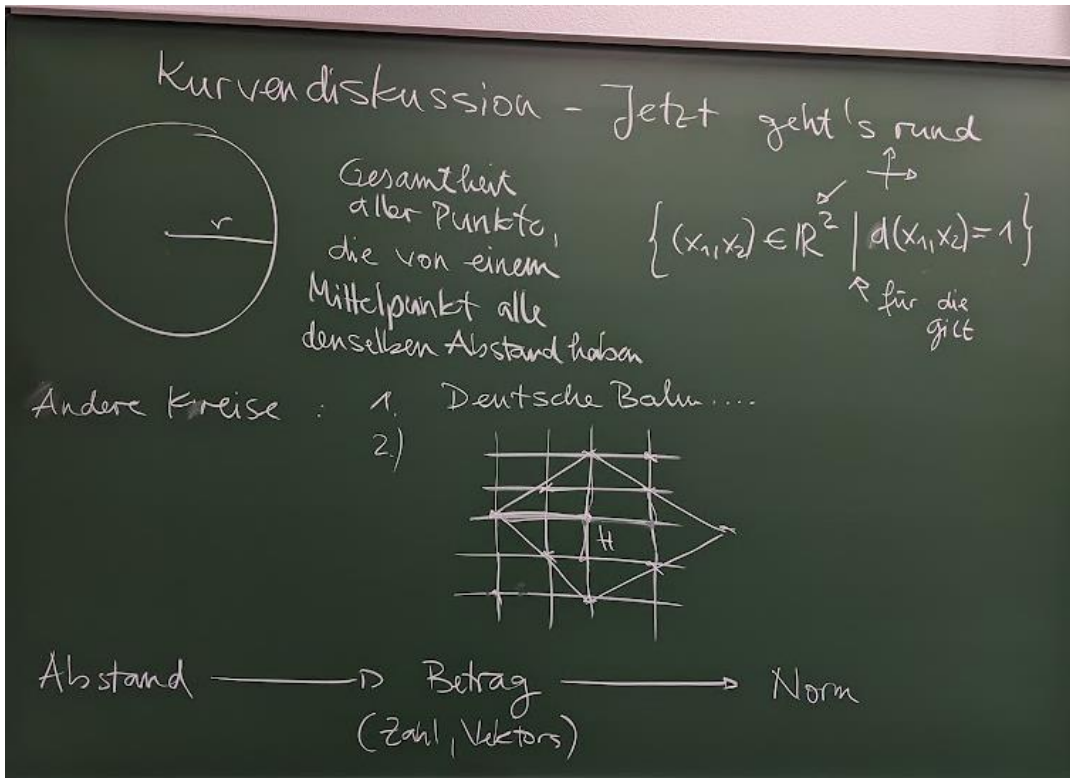 Kurvendiskussion - Jetzt geht's rund
r
Gesamtheit
aller Punkte,
die von einem
Mittelpunkt alle
denselben Abstand haben
{(x₁,x₂) ∈ ℝ² | d(x₁,x₂) = 1}
für die
gilt
Andere Kreise : 1. Deutsche Bahn....
2.)
H
Abstand → Betrag → Norm
(Zahl, Vektors)